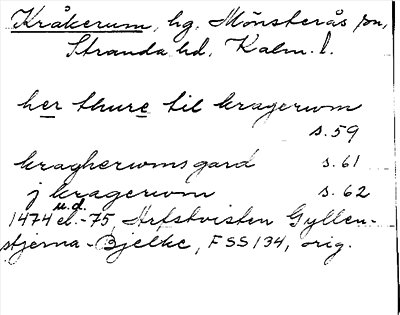 Kråkerum, hg. Mönsterås sn,
Stranda hd, Kalm. l.
her thure til kragerwm
s. 59
kragherwmsgard s. 61
j kragerwm s. 62
u.d.
1474 el. -75, Arfstvisten Gyllen-
stjerna - Bjelke, FSS 134, orig.